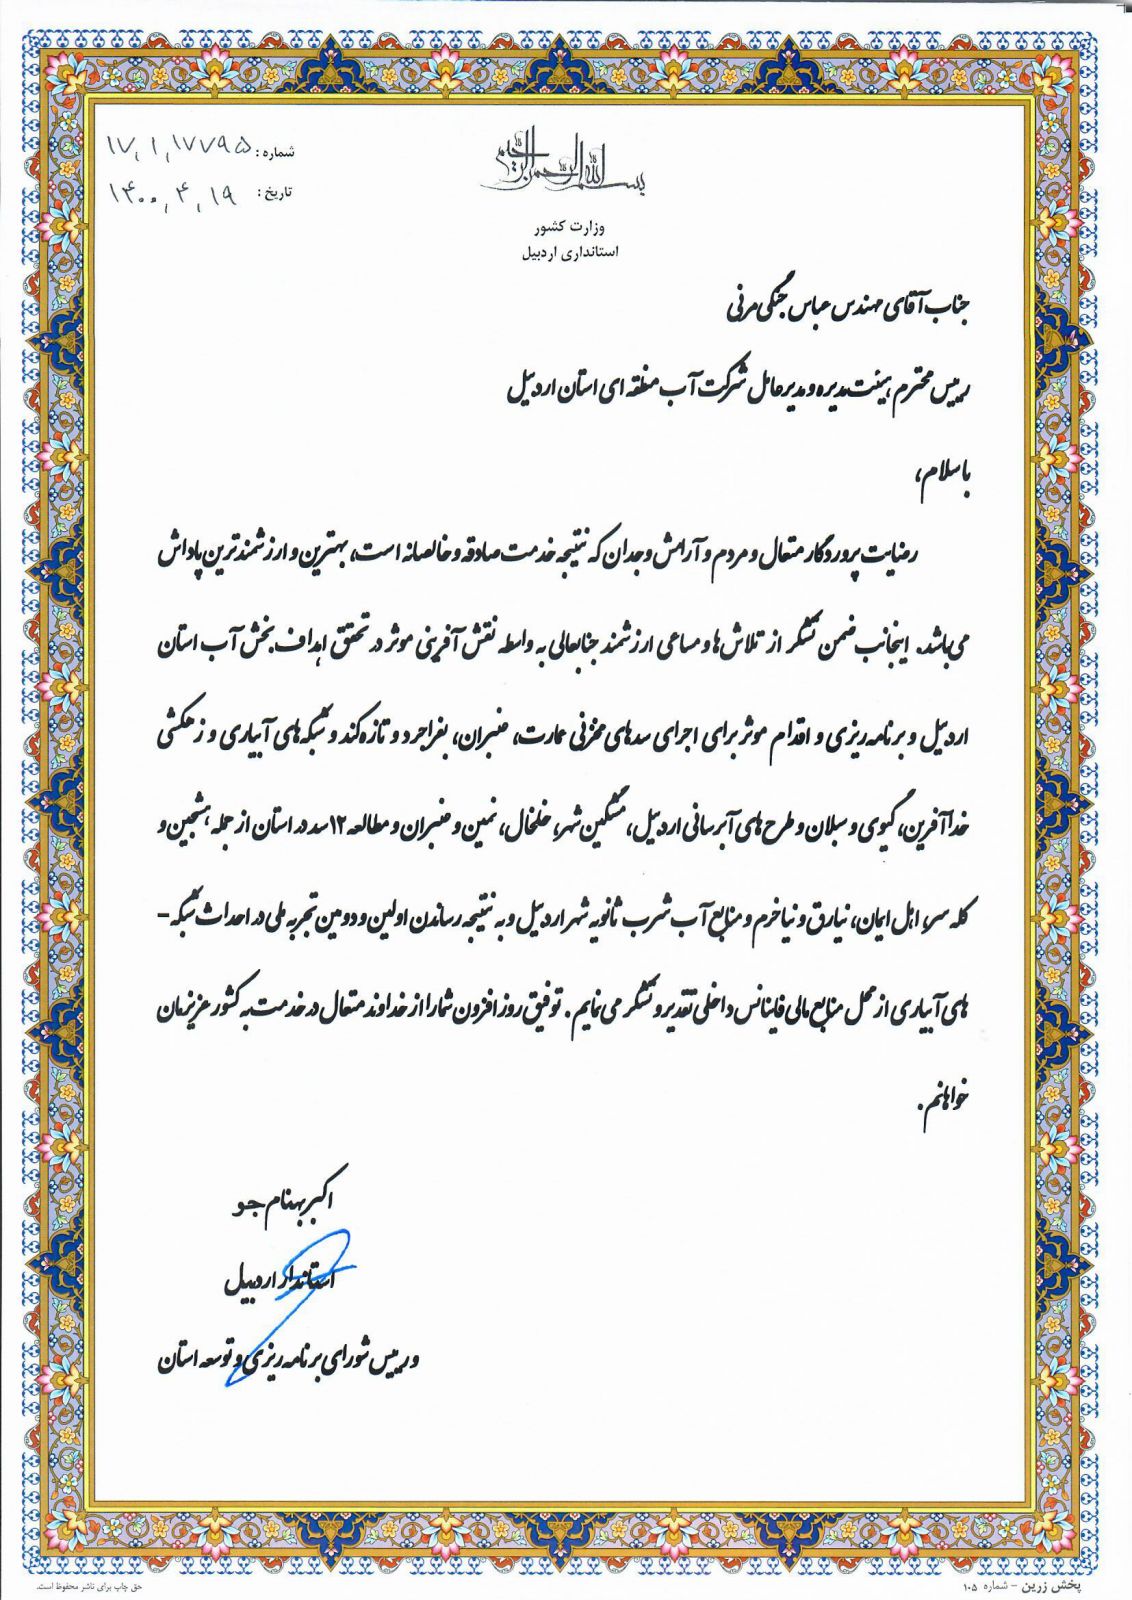 بسم الله الرحمن الرحیم
شماره : ۱۷,۱,۱۷۷۹۵
تاریخ : ۱۴۰۰,۴,۱۹
وزارت کشور
استانداری اردبیل
جناب آقای مهندس عباس جنگی مرنی
رییس محترم هیئت مدیره و مدیرعامل شرکت آب منطقه ای استان اردبیل
با سلام،
رضایت پروردگار متعال و مردم و آرامش وجدان که نتیجه خدمت صادقه و خالصانه است، بهترین و ارزشمندترین پاداش
می باشد. اینجانب ضمن تشکر از تلاش ها و مساعی ارزشمند جنابعالی به واسطه نقش آفرینی موثر در تحقق اهداف بخش آب استان
اردبیل و برنامه ریزی و اقدام موثر برای اجرای سدهای مخزنی عمارت، عنبران، بفراجرد و تازه کند و شبکه های آبیاری و زهکشی
خداآفرین، گیوی و سبلان و طرح های آبرسانی اردبیل، مشگین شهر، خلخال، نمین و عنبران و مطالعه ۱۲ سد در استان از جمله هشجین و
کله سر، اهل ایمان، نیارق و نیاخرم و منابع آب شرب ثانویه شهر اردبیل و به نتیجه رساندن اولین و دومین تجربه ملی در احداث شبکه -
های آبیاری از محل منابع مالی فاینانس داخلی تقدیر و تشکر می نمایم. توفیق روز افزون شما را از خداوند متعال در خدمت به کشور عزیزمان
خواهانم.
اکبر بهنام جو
استاندار اردبیل
و رییس شورای برنامه ریزی و توسعه استان
پخش زرین - شماره ۱۰۵
حق چاپ برای ناشر محفوظ است.